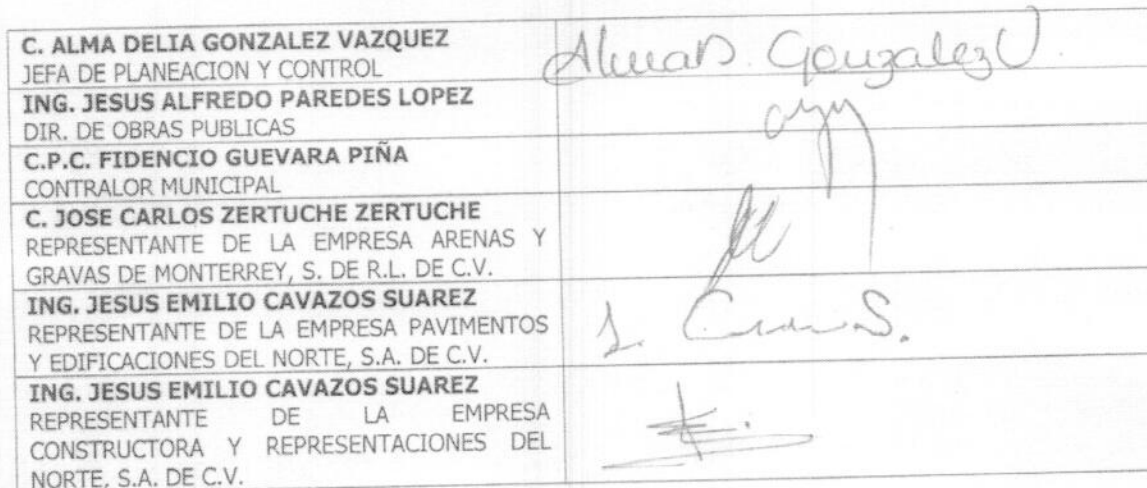 C. ALMA DELIA GONZALEZ VAZQUEZ
JEFA DE PLANEACION Y CONTROL
AlmaD. GonzalezV.
ING. JESUS ALFREDO PAREDES LOPEZ
DIR. DE OBRAS PUBLICAS
C.P.C. FIDENCIO GUEVARA PIÑA
CONTRALOR MUNICIPAL
C. JOSE CARLOS ZERTUCHE ZERTUCHE
REPRESENTANTE DE LA EMPRESA ARENAS Y
GRAVAS DE MONTERREY, S. DE R.L. DE C.V.
ING. JESUS EMILIO CAVAZOS SUAREZ
REPRESENTANTE DE LA EMPRESA PAVIMENTOS
Y EDIFICACIONES DEL NORTE, S.A. DE C.V.
ING. JESUS EMILIO CAVAZOS SUAREZ
REPRESENTANTE DE LA EMPRESA
CONSTRUCTORA Y REPRESENTACIONES DEL
NORTE, S.A. DE C.V.